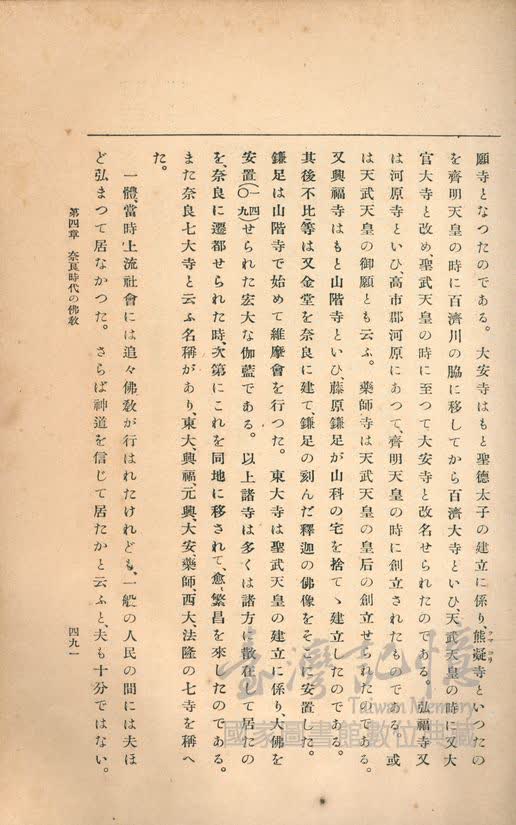 願寺となつたのである。大安寺はもと聖德太子の建立に係り、熊凝寺といつたの
クマコリ
を齊明天皇の時に百濟川の脇に移してから百濟大寺といひ、天武天皇の時に又大
官大寺と改め、聖武天皇の時に至つて大安寺と改名せられたのである。弘福寺又
は河原寺といひ、高市郡河原にあつて、齊明天皇の時に創立されたものである。或
は天武天皇の御願とも云ふ。藥師寺は天武天皇の皇后の創立せられたのである。
又興福寺はもと山階寺といひ、藤原鎌足が山科の宅を捨てゝ建立したのである。
其後不比等は又金堂を奈良に建て、鎌足の刻んだ釋迦の佛像をそこに安置した。
鎌足は山階寺で始めて維摩會を行つた。東大寺は聖武天皇の建立に係り、大佛を
安置(一四〇九)せられた宏大な伽藍である。以上諸寺は多くは諸方に散在して居たの
を、奈良に遷都せられた時、次第にこれを同地に移されて、愈〻繁昌を來したのである。
また奈良七大寺と云ふ名稱があり、東大、興福、元興、大安、藥師、西大、法隆の七寺を稱へ
た。
一體、當時上流社會には追々佛敎が行はれたけれども、一般の人民の間には夫ほ
ど弘まつて居なかつた。さらば神道を信じて居たかと云ふと、夫も十分ではない。
第四章 奈良時代の佛敎
四九一
臺灣記憶
Taiwan Memory
國家圖書館數位典藏